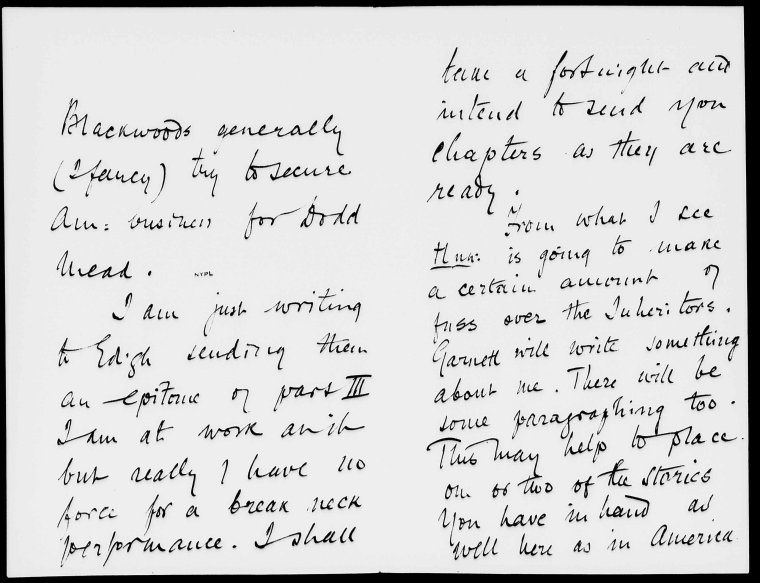 Blackwoods generally
(I fancy) try to secure
Am: business for Dodd
Mead.
NYPL
I am just writing
to Edigh sending them
an epitome of part III
I am at work on it
but really I have no
force for a break neck
performance. I shall
take a fortnight and
intend to send you
chapters as they are
ready.
From what I see
is going to make
a certain amount of
fuss over the Inheritors.
Garnett will write something
about me. There will be
some paragraphing too.
This may help to place
one or two of the stories
You have in hand as
well here as in America